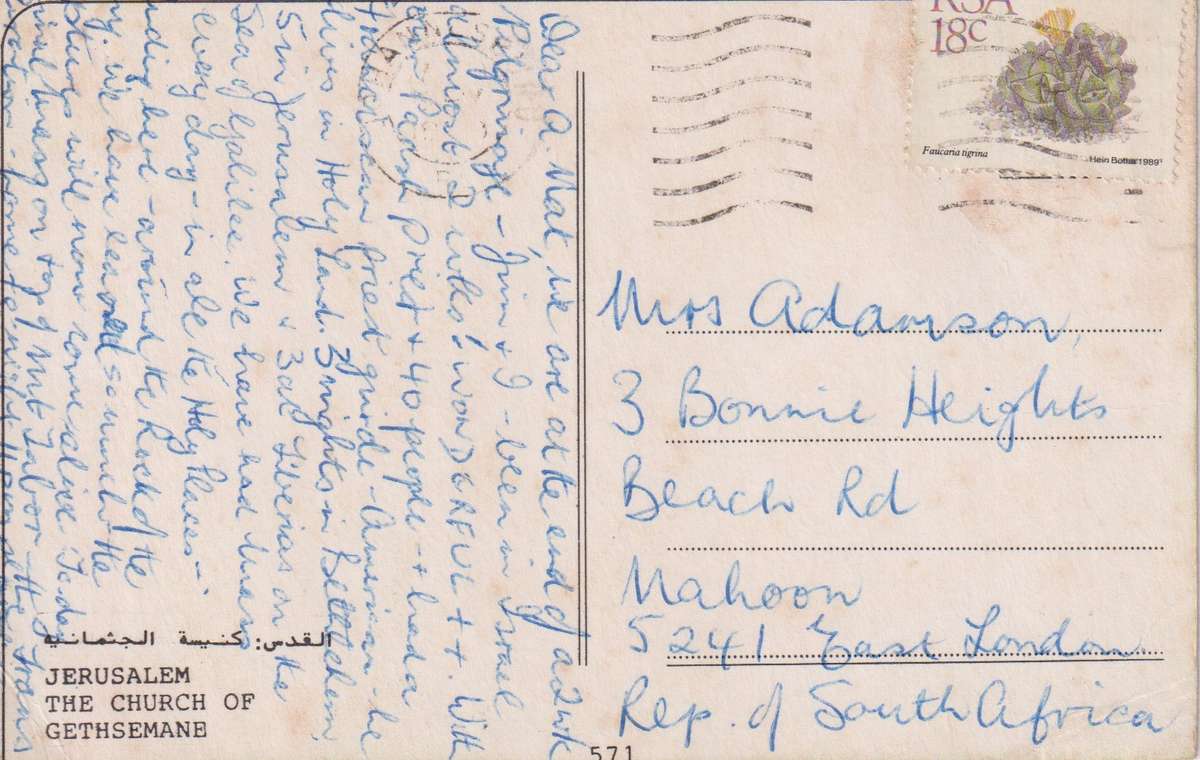 Dear A. Mat, We are at the end of a 2wk
Pilgrimage - Jim & I - been in Israel
almost 2 wks! WONDERFUL ++. With
our Parish priest + 40 people + had a
Franciscan priest guide - American - he
lives in Holy Land. 3 nights in Bethlehem,
5 in Jerusalem & 3 at Tiberias on the
Sea of Galilee. We have had Mass
every day - in all the Holy Places -
including here - around the Rock of the
We have learned so much the
will now come alive. Today
Mass on top of Mt Tabor - the Trans
home tonight
القدس: كنيسة الجثمانيه
JERUSALEM
THE CHURCH OF
GETHSEMANE
571
RSA
18c
Faucaria tigrina
Hein Botha 1989
Mrs Adamson,
3 Bonnie Heights
Beach Rd
Nahoon
5241 East London
Rep. of South Africa